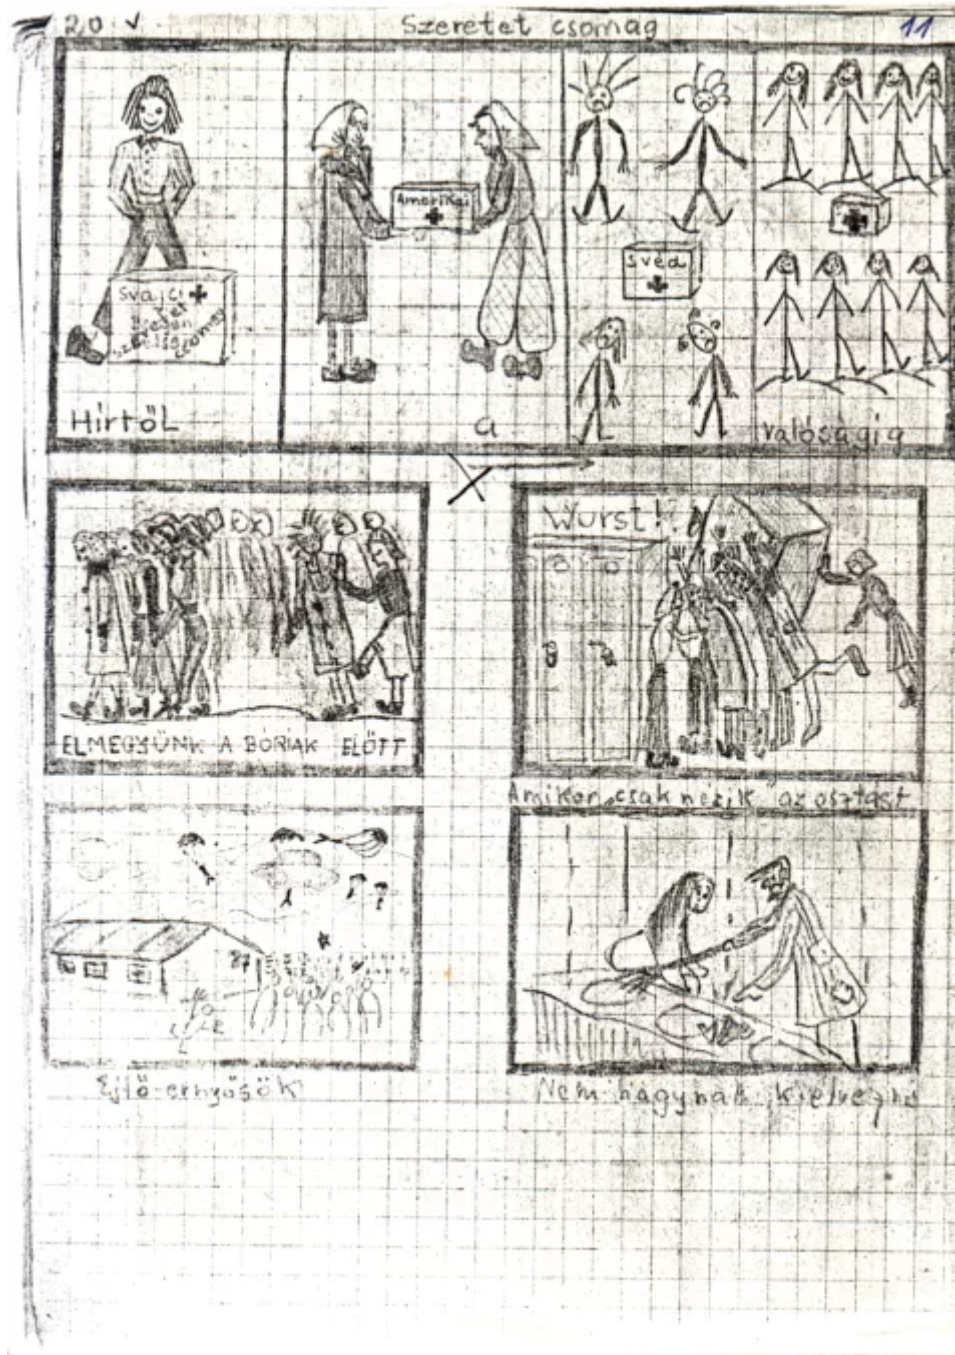 20 ✓
Szeretet csomag
11
Svájci
szeretet
csomag
Amerikai
Svéd
Hírtől
a
valóságig
Wurst!
ELMEGYÜNK A BÓRIAK ELŐTT
Amikor „csak nézik” az osztást
27
Ejtő-ernyősök
Nem hagynak kiélvezni